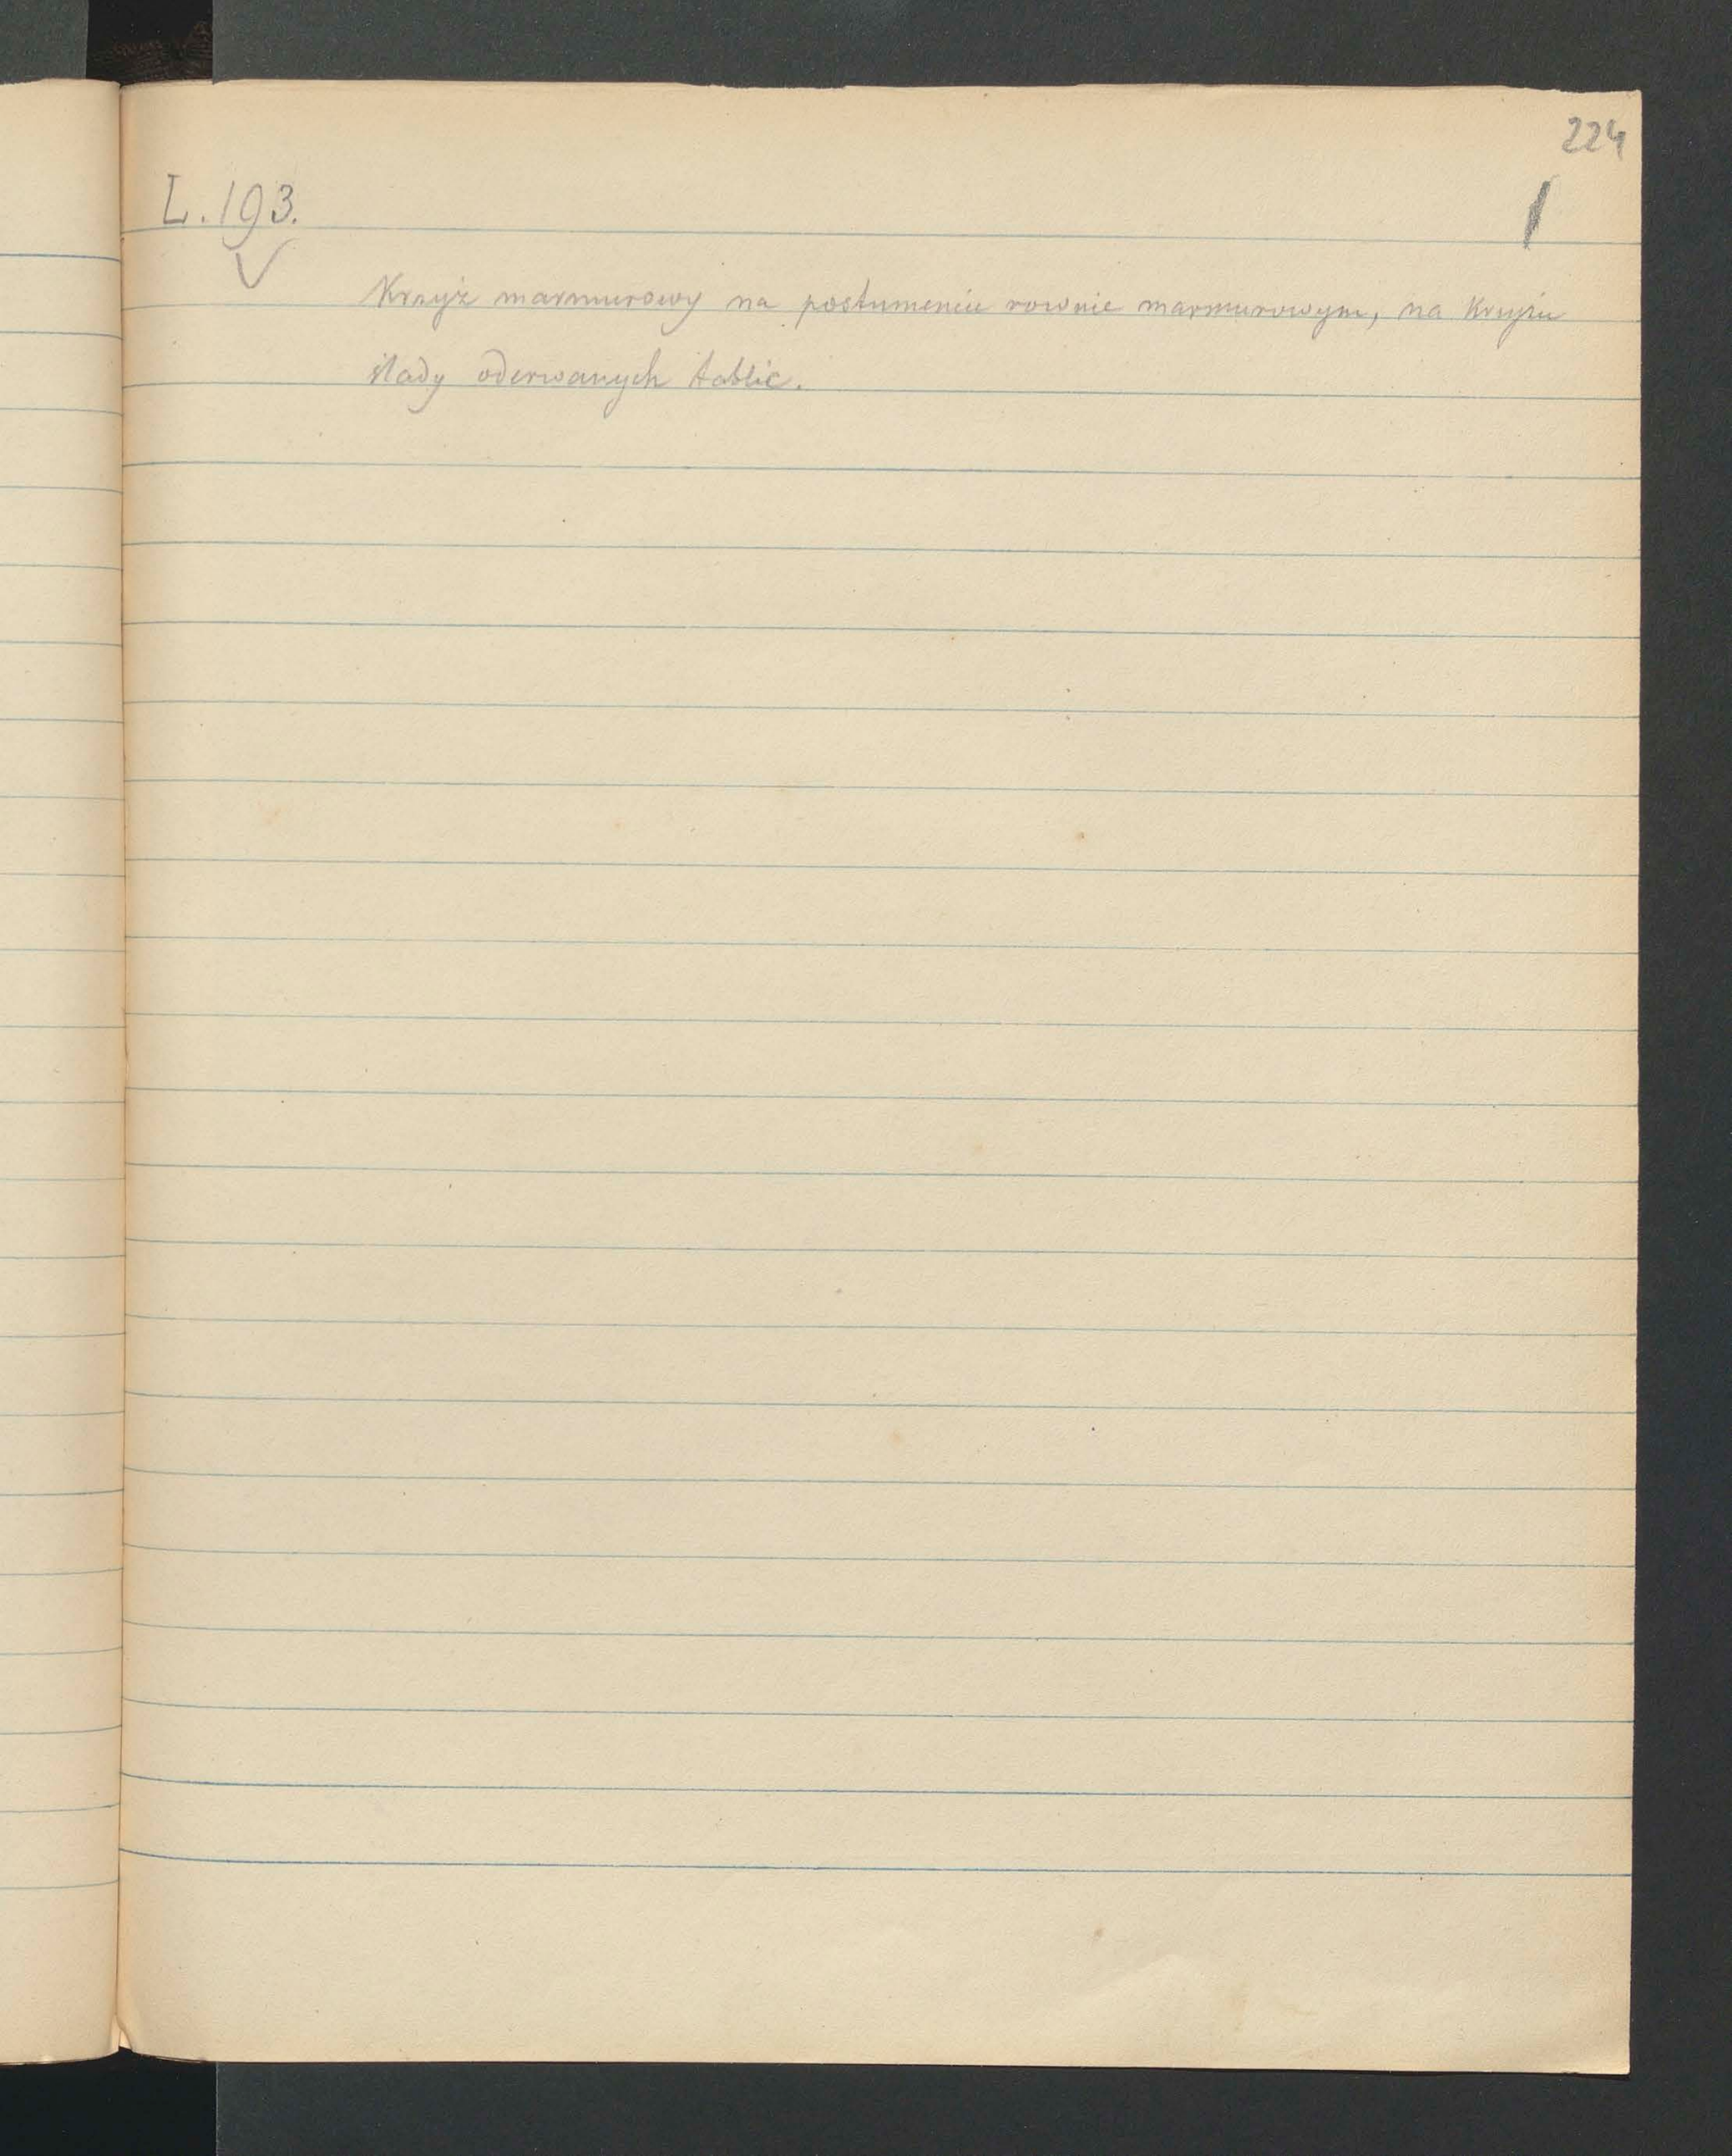 224
L. 193.
Krzyż marmurowy na postumencie rownie marmurowym, na Krzyżu
ślady oderwanych tablic.